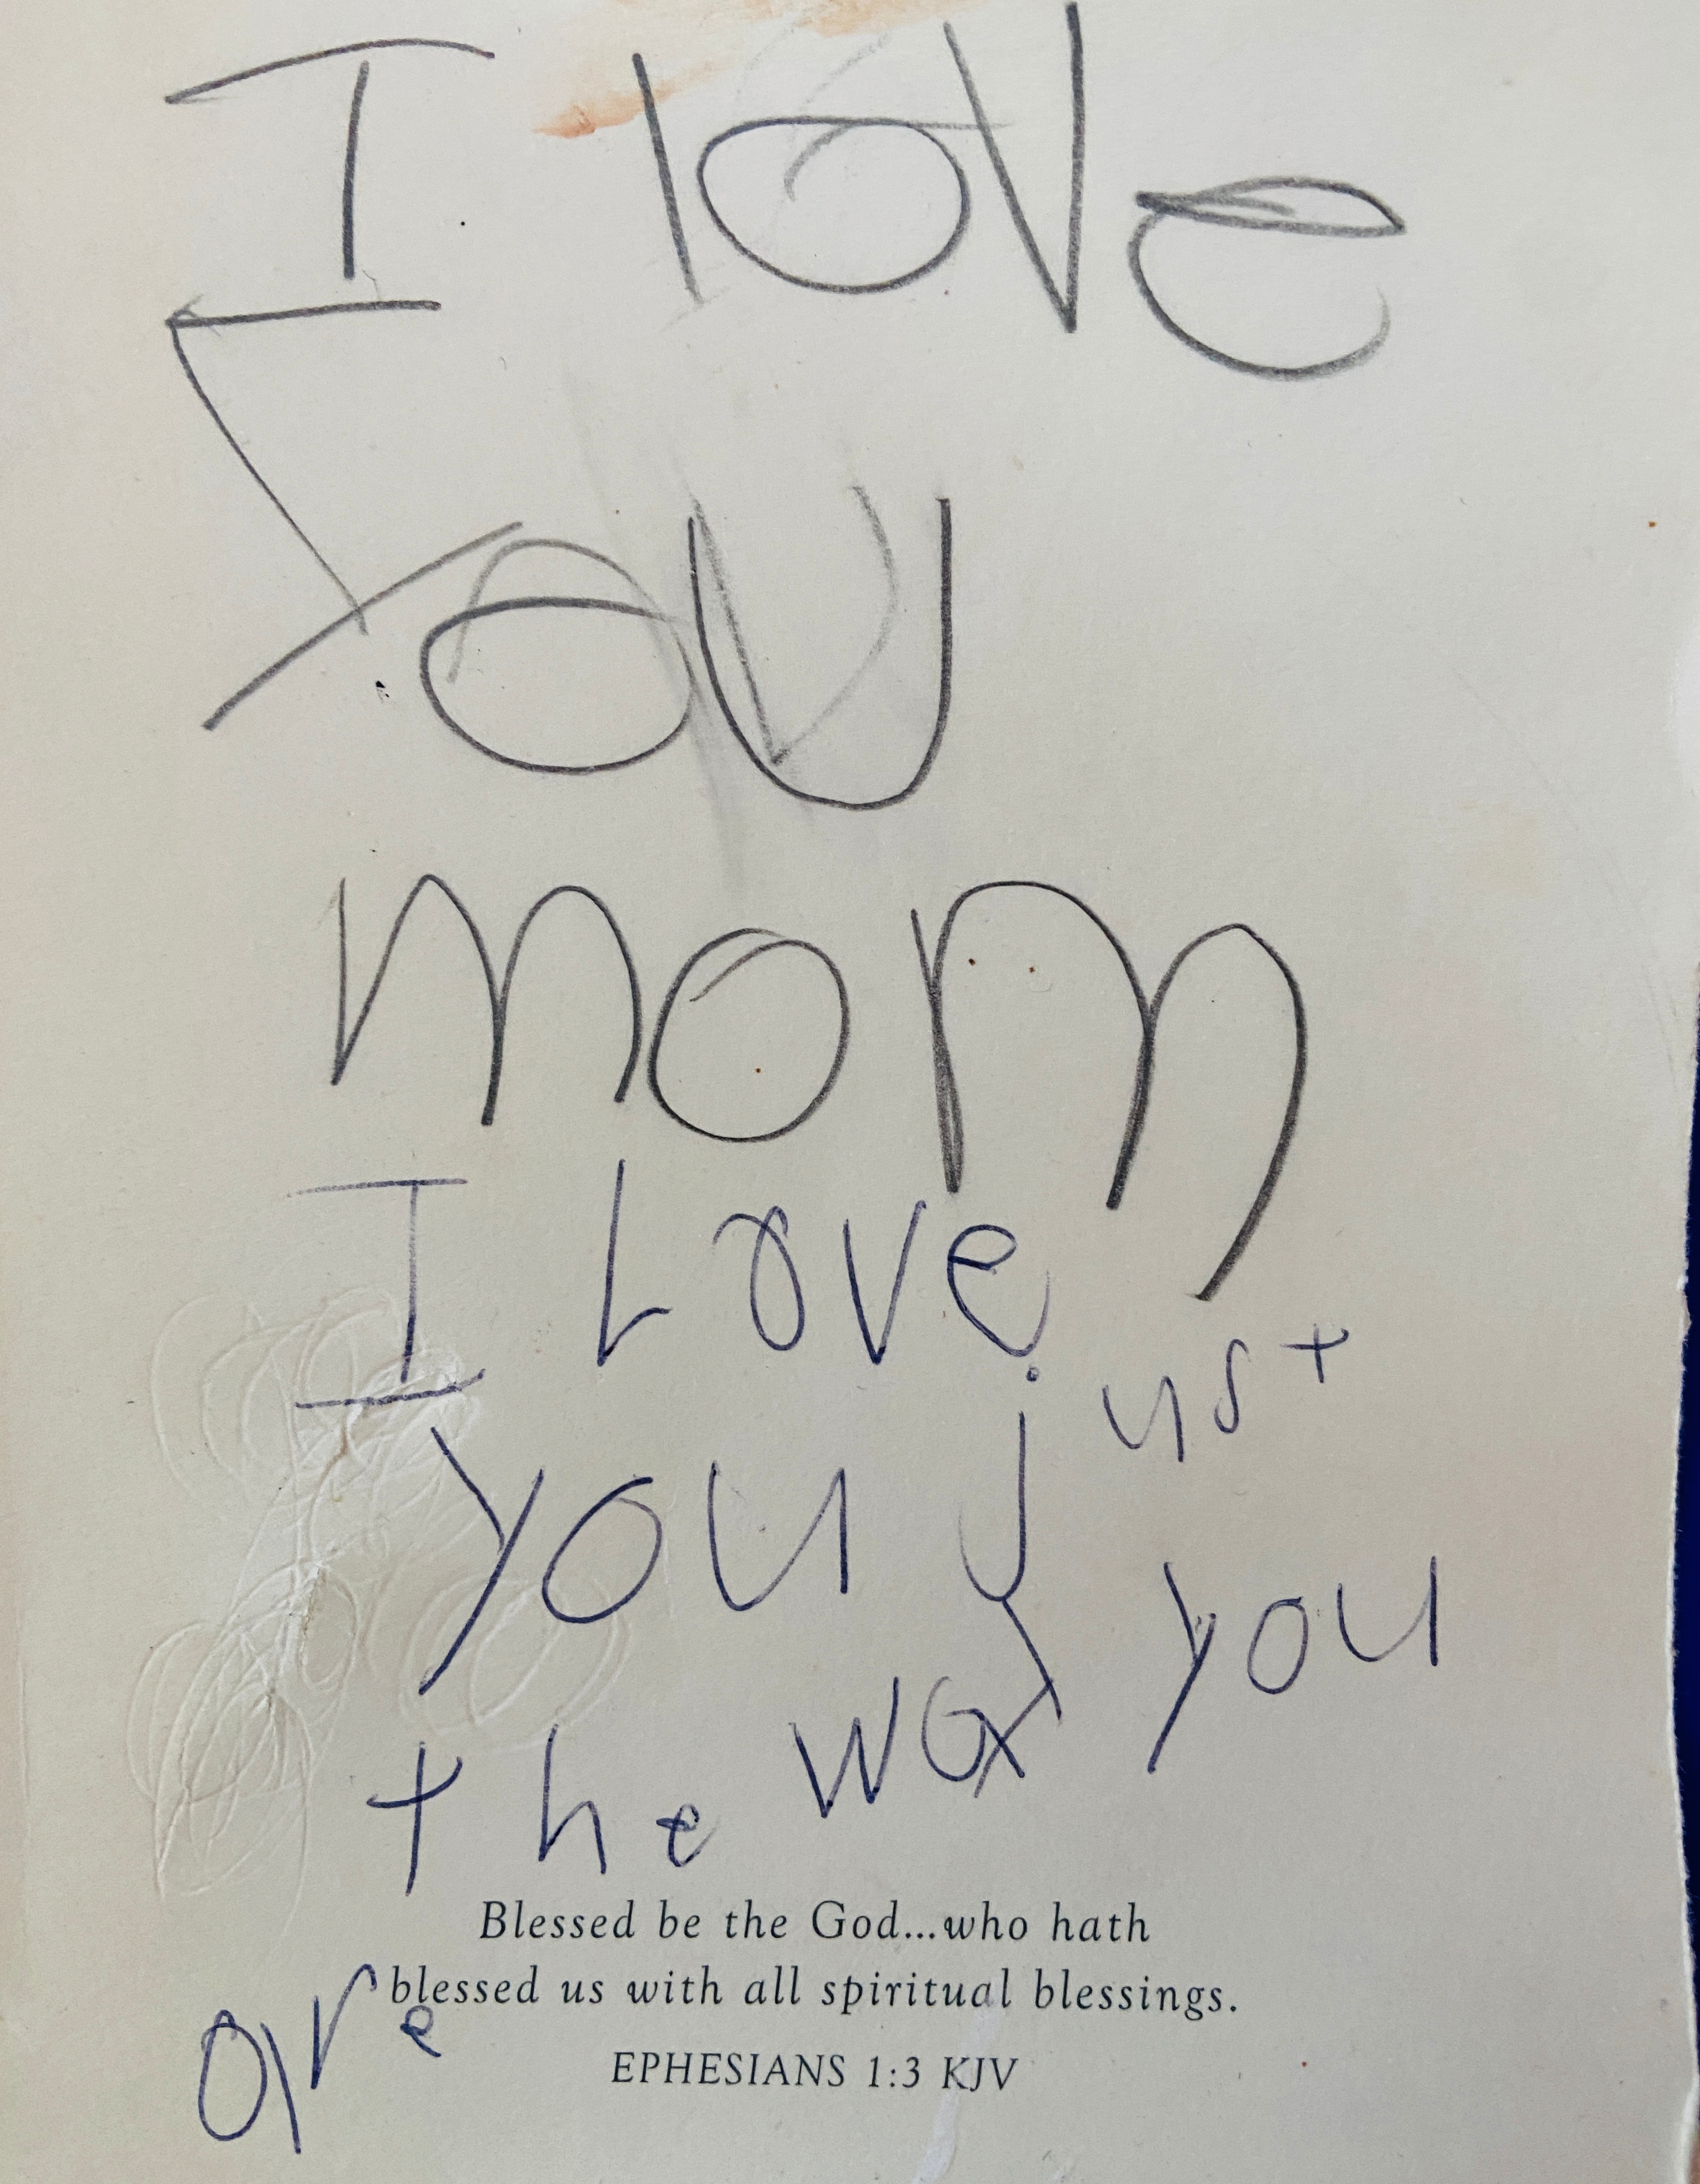 I love
you
mom
I Love
you just
the way you
Blessed be the God...who hath
are blessed us with all spiritual blessings.
EPHESIANS 1:3 KJV